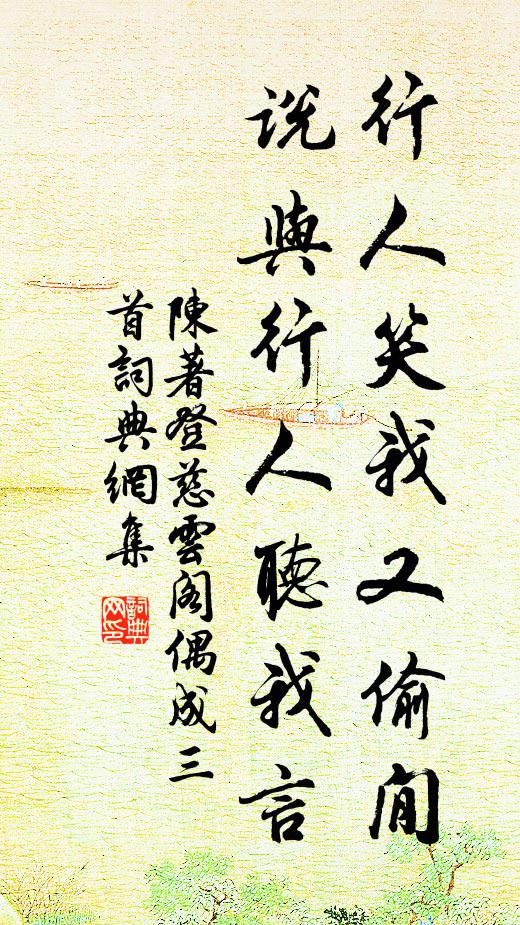 行人笑我又偷閒
說與行人聽我言
陳著登慈雲閣偶成三
首詞典網集
詞典
网印